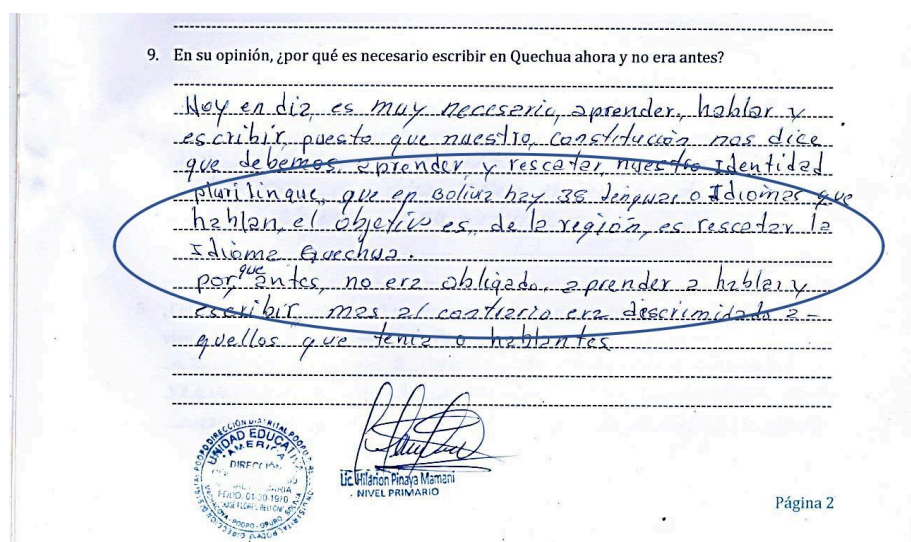 9. En su opinión, ¿por qué es necesario escribir en Quechua ahora y no era antes?
Hoy en dia, es muy necesario, aprender, hablar y
escribir, puesto que nuestro, constitución nos dice
que debemos aprender, y rescatar nuestro Identidad
plurilingue, que en Bolivia hay 36 lenguas o Idiomas que
hablan, el objetivo es, de la región, es rescatar la
Idioma Quechua.
por que antes, no era obligado, aprender a hablar y
escribir mas al contrario era descrimidado a-
quellos que tenia o hablantes
UNIDAD EDUCATIVA
AMERICA
DIRECCIÓN
Lic. Hilarion Pinaya Mamani
NIVEL PRIMARIO
Página 2